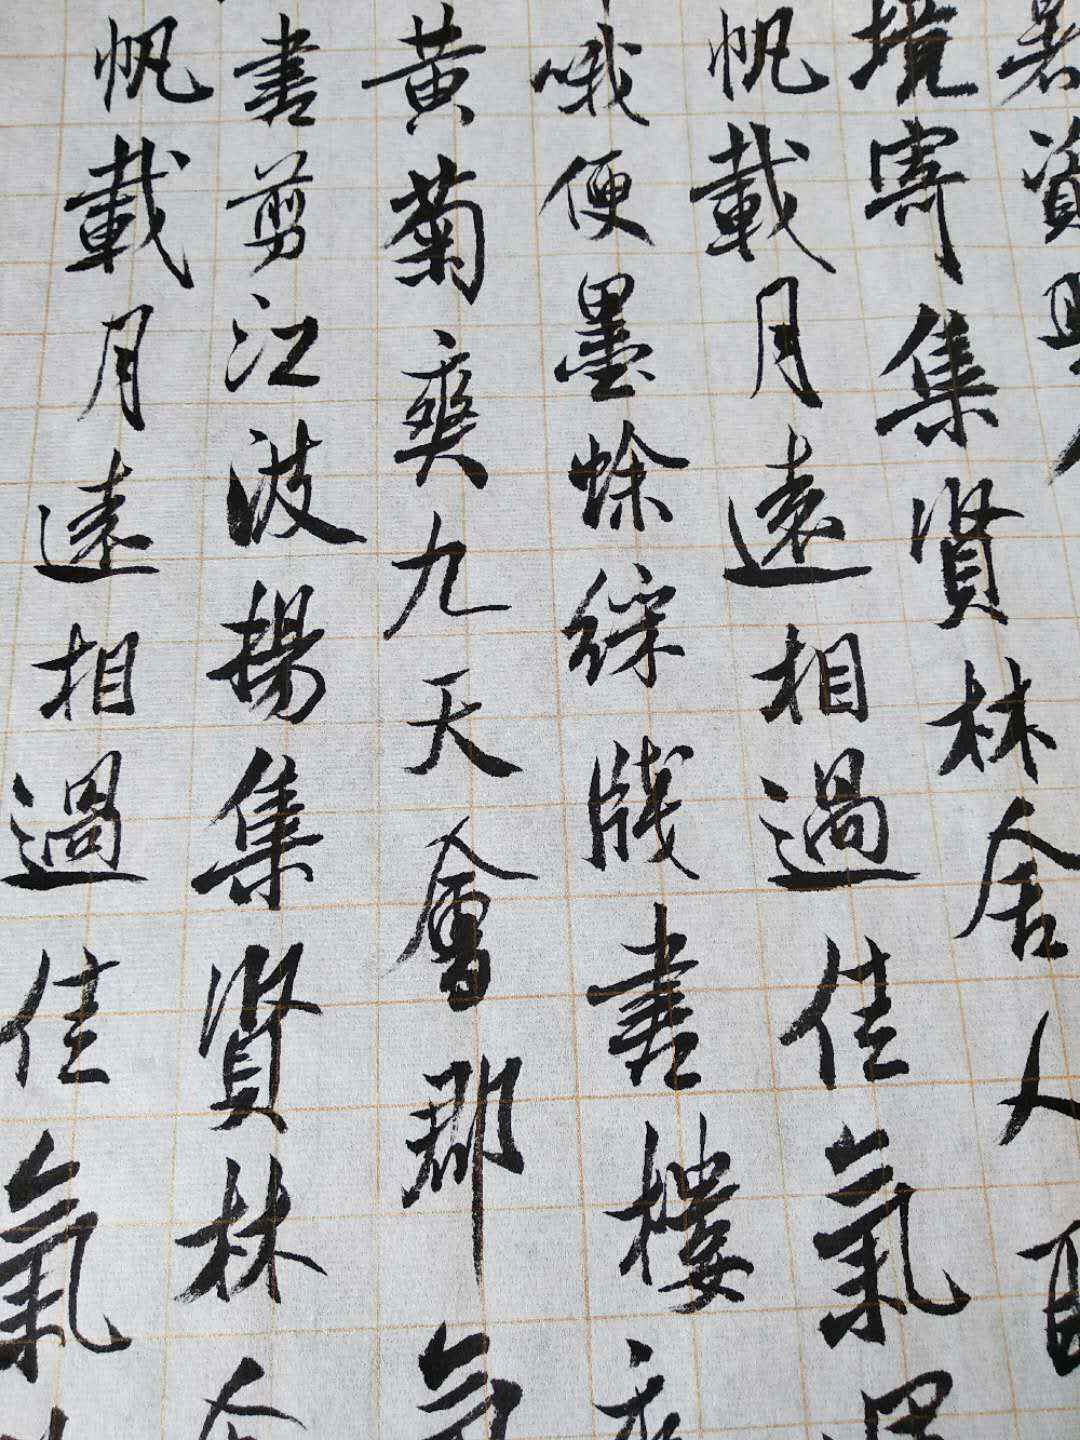 暑資
境寄集賢林舍人
帆載月遠相過佳氣
哦便墨蜍綵牋書樓
黃菊爽九天會郡
書剪江波揚集賢林
帆載月遠相過佳氣